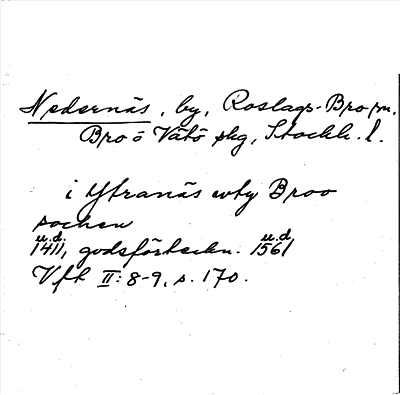 Nedernäs, by, Roslags-Bro sn.
Bro o Vätö skg, Stockh. l.
i Ytranäs vty Broo
sochen
u.d. u.d.
1411, godsförteckn. 1561
Vfk II: 8-9, s. 170.